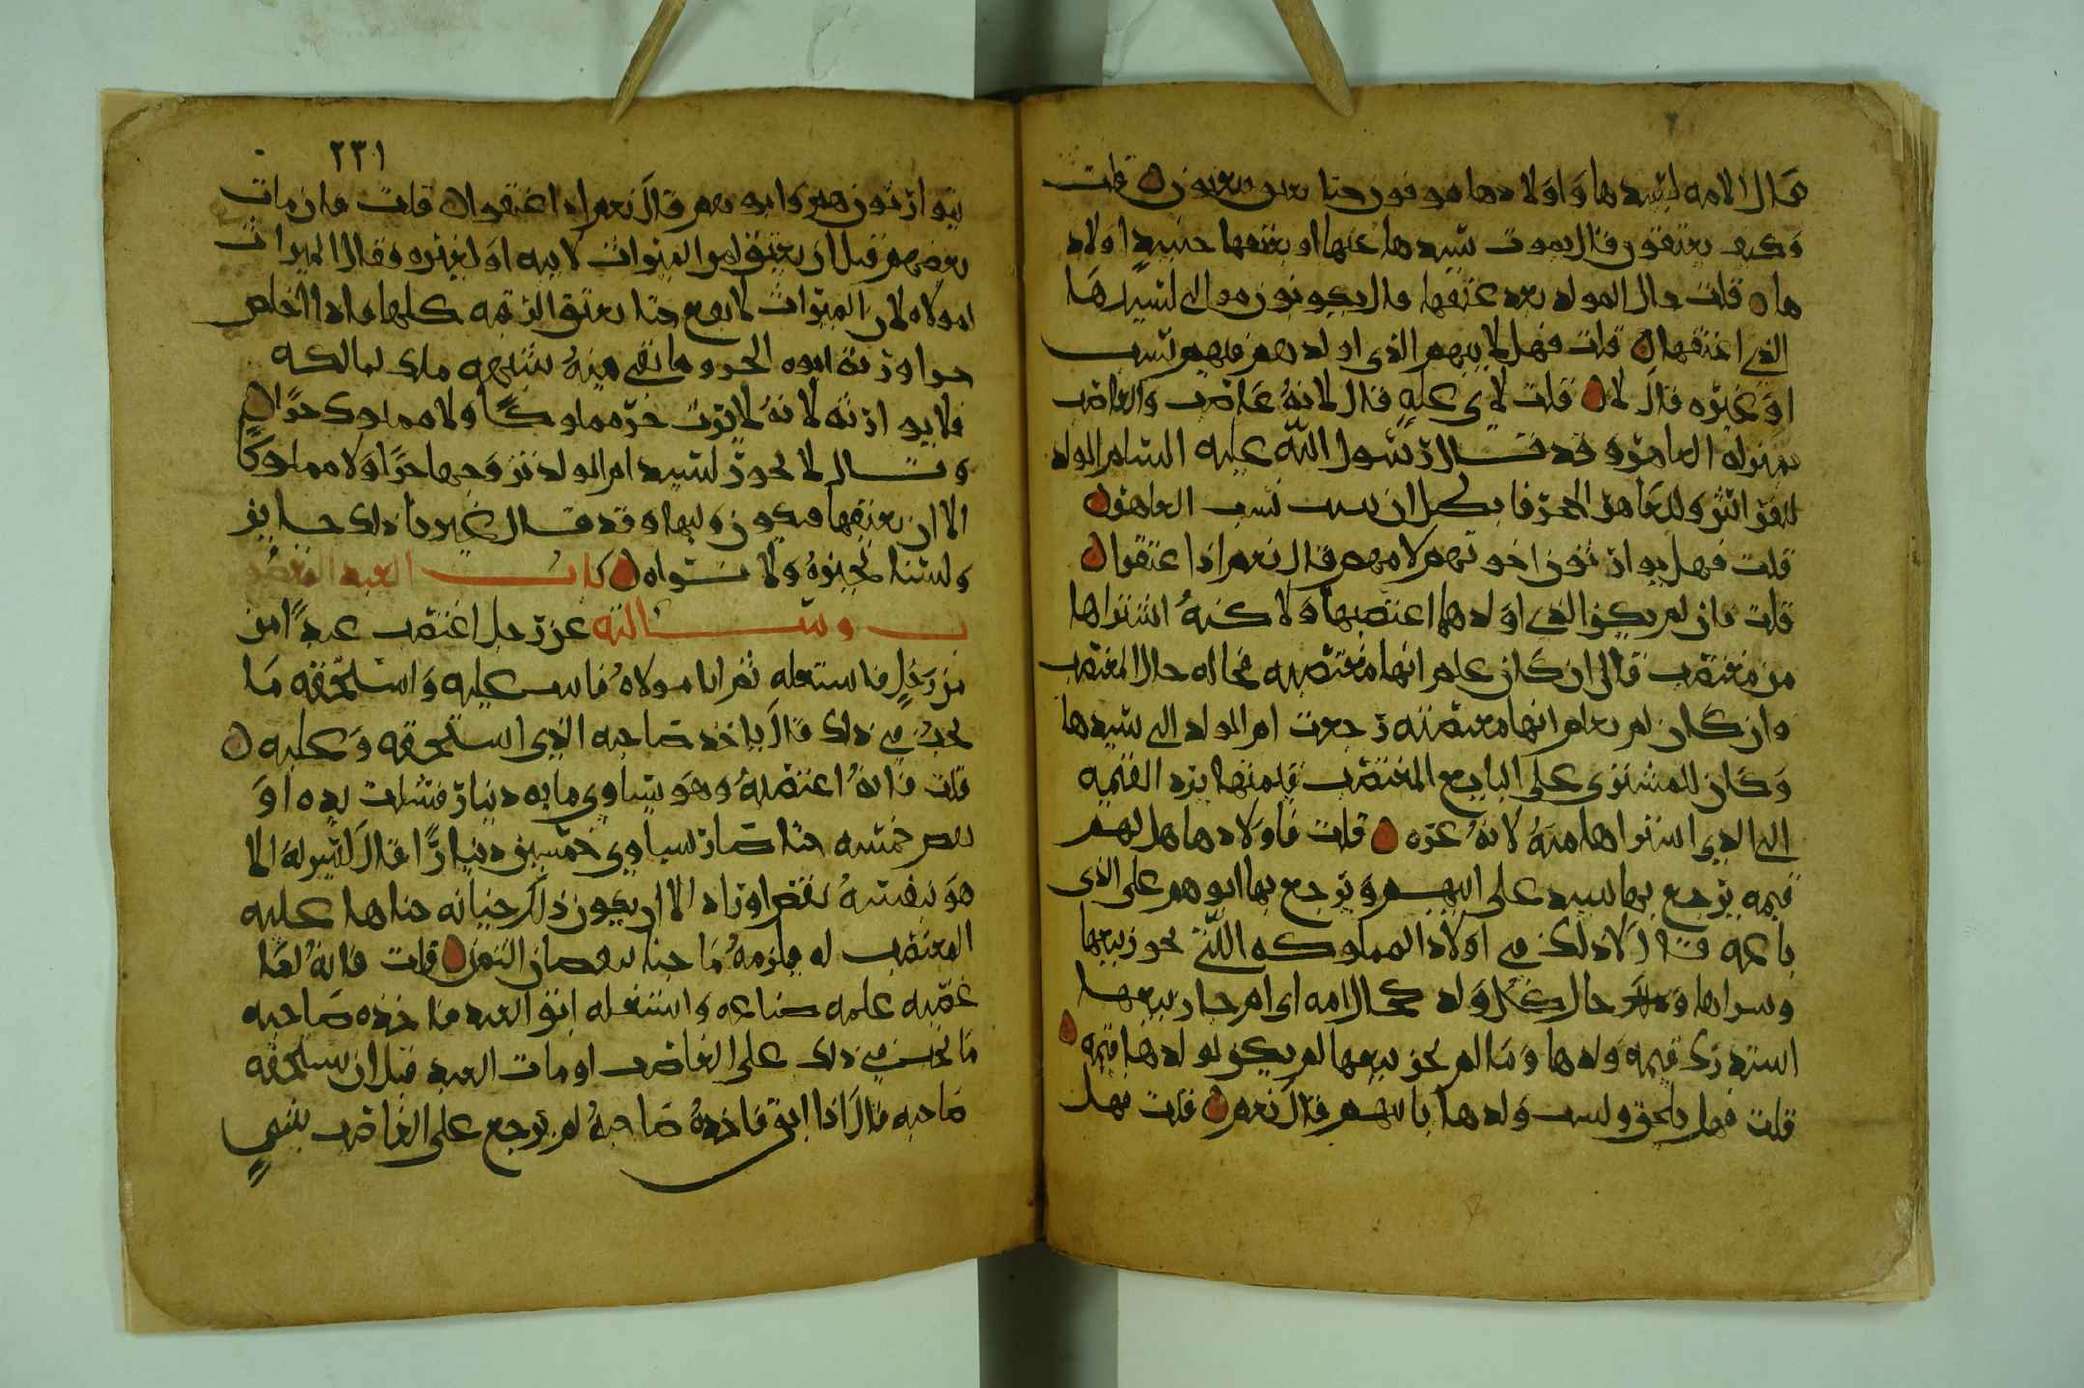 قال الامه لسيدها واولادها موقوفون حتا يعتقون قلت
وكيف يعتقون قال بموت سيدها عنها او بعتقها حنيد اولاد
ها قلت حال المولد بعد عتقها قال يكونون موالى لسيدها
الذي اعتقها قلت فهل لابيهم الذي اولدهم منهم نسب
او غيره قال لا قلت لاي عله قال لانه غاصب والغاصب
بمنزلة العاهر وقد قال رسول الله عليه السلم الولد
للفراش وللعاهر الحجر فابطل ان يسب نسب العاهر
قلت فهل يوارثون اخوتهم لامهم قال نعم اذا عتقوا
قلت فان لم يكن الذي اولدها اغتصبها ولاكنه اشتراها
من مغتصب قال ان كان علم انها مغتصبه فحاله حال المغتصب
وان كان لم يعلم انها مغتصبه رجعت ام الولد الى سيدها
وكان للمشتري على البايع المغتصب قيمتها يرد القيمه
الى الذي اشتراها منه لانه غره قلت فاولادها هل لهم
قيمه يرجع بها سيد على ابيهم ويرجع بها ابوهم على الذي
باعه قال لا ذلك في اولاد المملوكه التي يجوز بيعها
وشراها حال كل ولد كحال امه اي ام جاز بيعها
استدرك قيمه ولدها وما لم يجز بيعها لم يكن لولدها قيمه
قلت فهل يلحق ولسب ولدها بابيهم قال نعم قلت فهل
٢٣١
يتوارثون هم وابوهم قال نعم اذا اعتقوا قلت فان مات
بعضهم قبل ان يعتق لمن الميراث لابيه او لغيره فقال الميراث
لمولاه لان الميراث لا يقع حتا يعتق الرقبه كلها واذا خلص
حرا ورثه ابوه الحر وما بقي منه شبهه ملك لمالكه
فلا يوارثه لانه لا يرث حر مملوكا ولا مملوك حرا
وقال لا يجوز لسيد ام الولد تزوجها حرا ولا مملوكا
الا ان يعتقها فيكون وليها وقد قال غيرنا ذلك جايز
ولسنا نجيزه ولا نراه كتاب العبد المغصو
ب وسالته عن رجل اغتصب عبدا من
من رجل فاستعمله ثم اتا مولاه عليه واستحقه ما
يجب في ذلك قال ياخذ صاحبه الذي استحقه وغلبه
قلت فانه اغتصبه وهو يساوي مايه دينار فشلت يده او
بعض خمسه حتا صار يساوي خمسين دينارا قال ليس له الا
هو بنفسه نقص او زاد الا ان يكون ذلك جنايه جناها عليه
المغتصب له فيلزمه ما جنا نقصان الثمن قلت فانه لما
غصبه علمه صناعه واستعمله ابق العبد فاخذه صاحبه
ما يجب في ذلك على الغاصب او مات العبد قبل ان يستحقه
صاحبه قال اذا ابق فاخذه صاحبه لم يرجع على الغاصب بشي